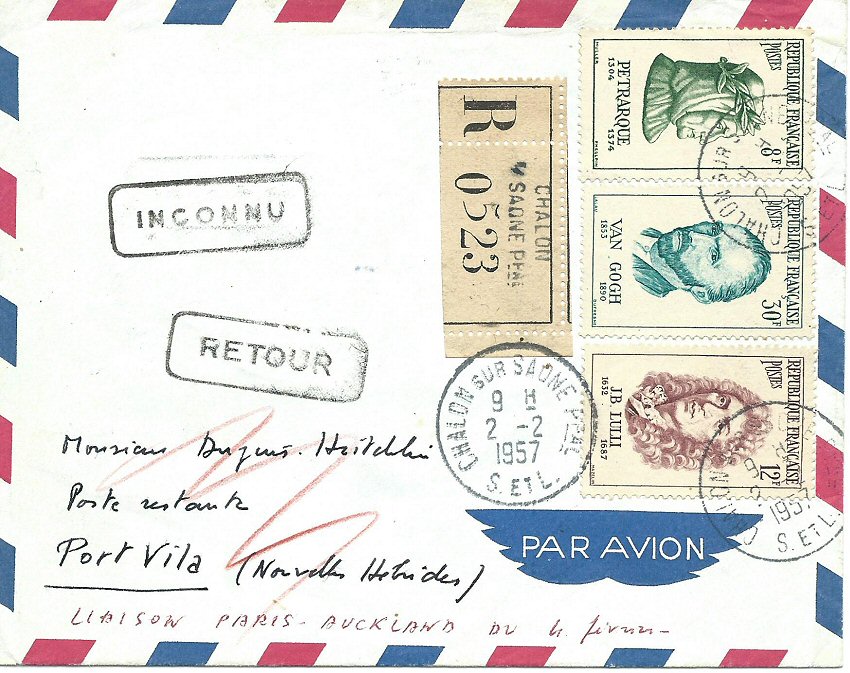 REPUBLIQUE FRANÇAISE
POSTES
8F
PETRARQUE
1304 1374
REPUBLIQUE FRANÇAISE
POSTES
30F
VAN GOGH
1853 1890
REPUBLIQUE FRANÇAISE
POSTES
12F
J.B. LULLI
1632 1687
R
CHALON
S/ SAONE PPAL
0523
INCONNU
RETOUR
CHALON SUR SAONE PPAL
9 H
2 - 2
1957
S. ET L.
1957
S. ET L.
PAR AVION
Monsieur
Poste restante
Port Vila (Nouvelles Hébrides)
LIAISON PARIS-AUCKLAND DU 4 février